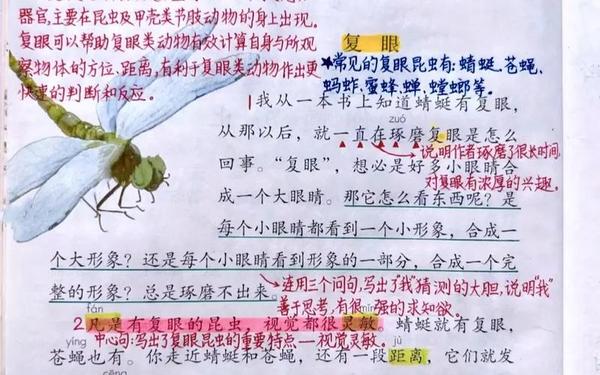 器官,主要在昆虫及甲壳类节肢动物的身上出现。
复眼可以帮助复眼类动物有效计算自身与所观
察物体的方位、距离,有利于复眼类动物作出更
快速的判断和反应。
复 眼
*常见的复眼昆虫有:蜻蜓、苍蝇、
蚂蚱、蜜蜂、蝉、螳螂等。
1我从一本书上知道蜻蜓有复眼,
zuó
从那以后,就一直在琢磨复眼是怎么
说明作者琢磨了很长时间,
回事。“复眼”,想必是好多小眼睛合
对复眼有浓厚的兴趣。
成一个大眼睛。那它怎么看东西呢?是
每个小眼睛都看到一个小形象,合成一
个大形象?还是每个小眼睛看到形象的一部分,合成一个完
整的形象?总是琢磨不出来。
连用三个问句,写出了“我”猜测的大胆,说明“我”
善于思考,有很强的求知欲。
fán
mǐn
2凡是有复眼的昆虫,视觉都很灵敏。蜻蜓就有复眼,
中心句:写出了复眼昆虫的重要特点—视觉灵敏。
yíng
jù
苍蝇也有。你走近蜻蜓和苍蝇,还有一段距离,它们就发
cēng